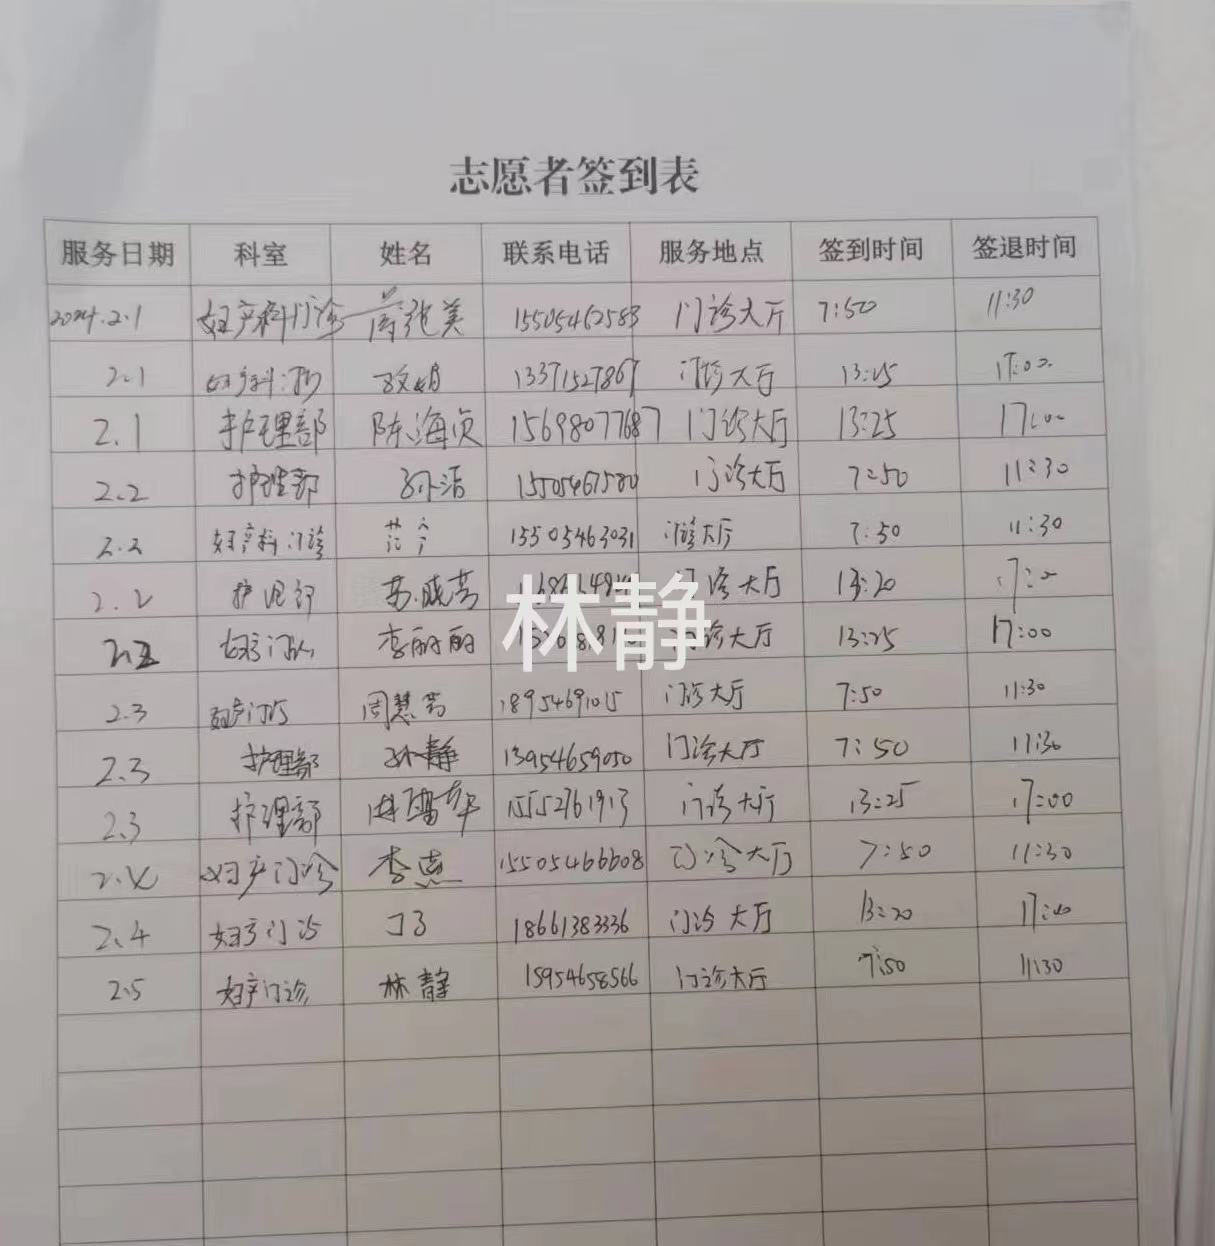 志愿者签到表
服务日期 科室 姓名 联系电话 服务地点 签到时间 签退时间
2024.2.1 妇产科门诊 美 15505462583 门诊大厅 7:50 11:30
2.1 13371527867 门诊大厅 13:25 17:00
2.1 护理部 陈海贞 15698077687 门诊大厅 13:25 17:00
2.2 护理部 孙洁 15505467580 门诊大厅 7:50 11:30
2.2 妇产科门诊 15505463031 门诊大厅 7:50 11:30
2.2 护理部 门诊大厅 13:20
2.2 李丽丽 门诊大厅 13:25 17:00
林静
2.3 周慧芳 18954691015 门诊大厅 7:50 11:30
2.3 护理部 孙静 13954659050 门诊大厅 7:50 11:30
2.3 护理部 15552761913 门诊大厅 13:25 17:00
妇产门诊 李 15505466608 门诊大厅 7:50 11:30
2.4 妇产门诊 18661383336 门诊大厅 13:20 17:00
2.5 妇产门诊 林静 15954658566 门诊大厅 7:50 11:30